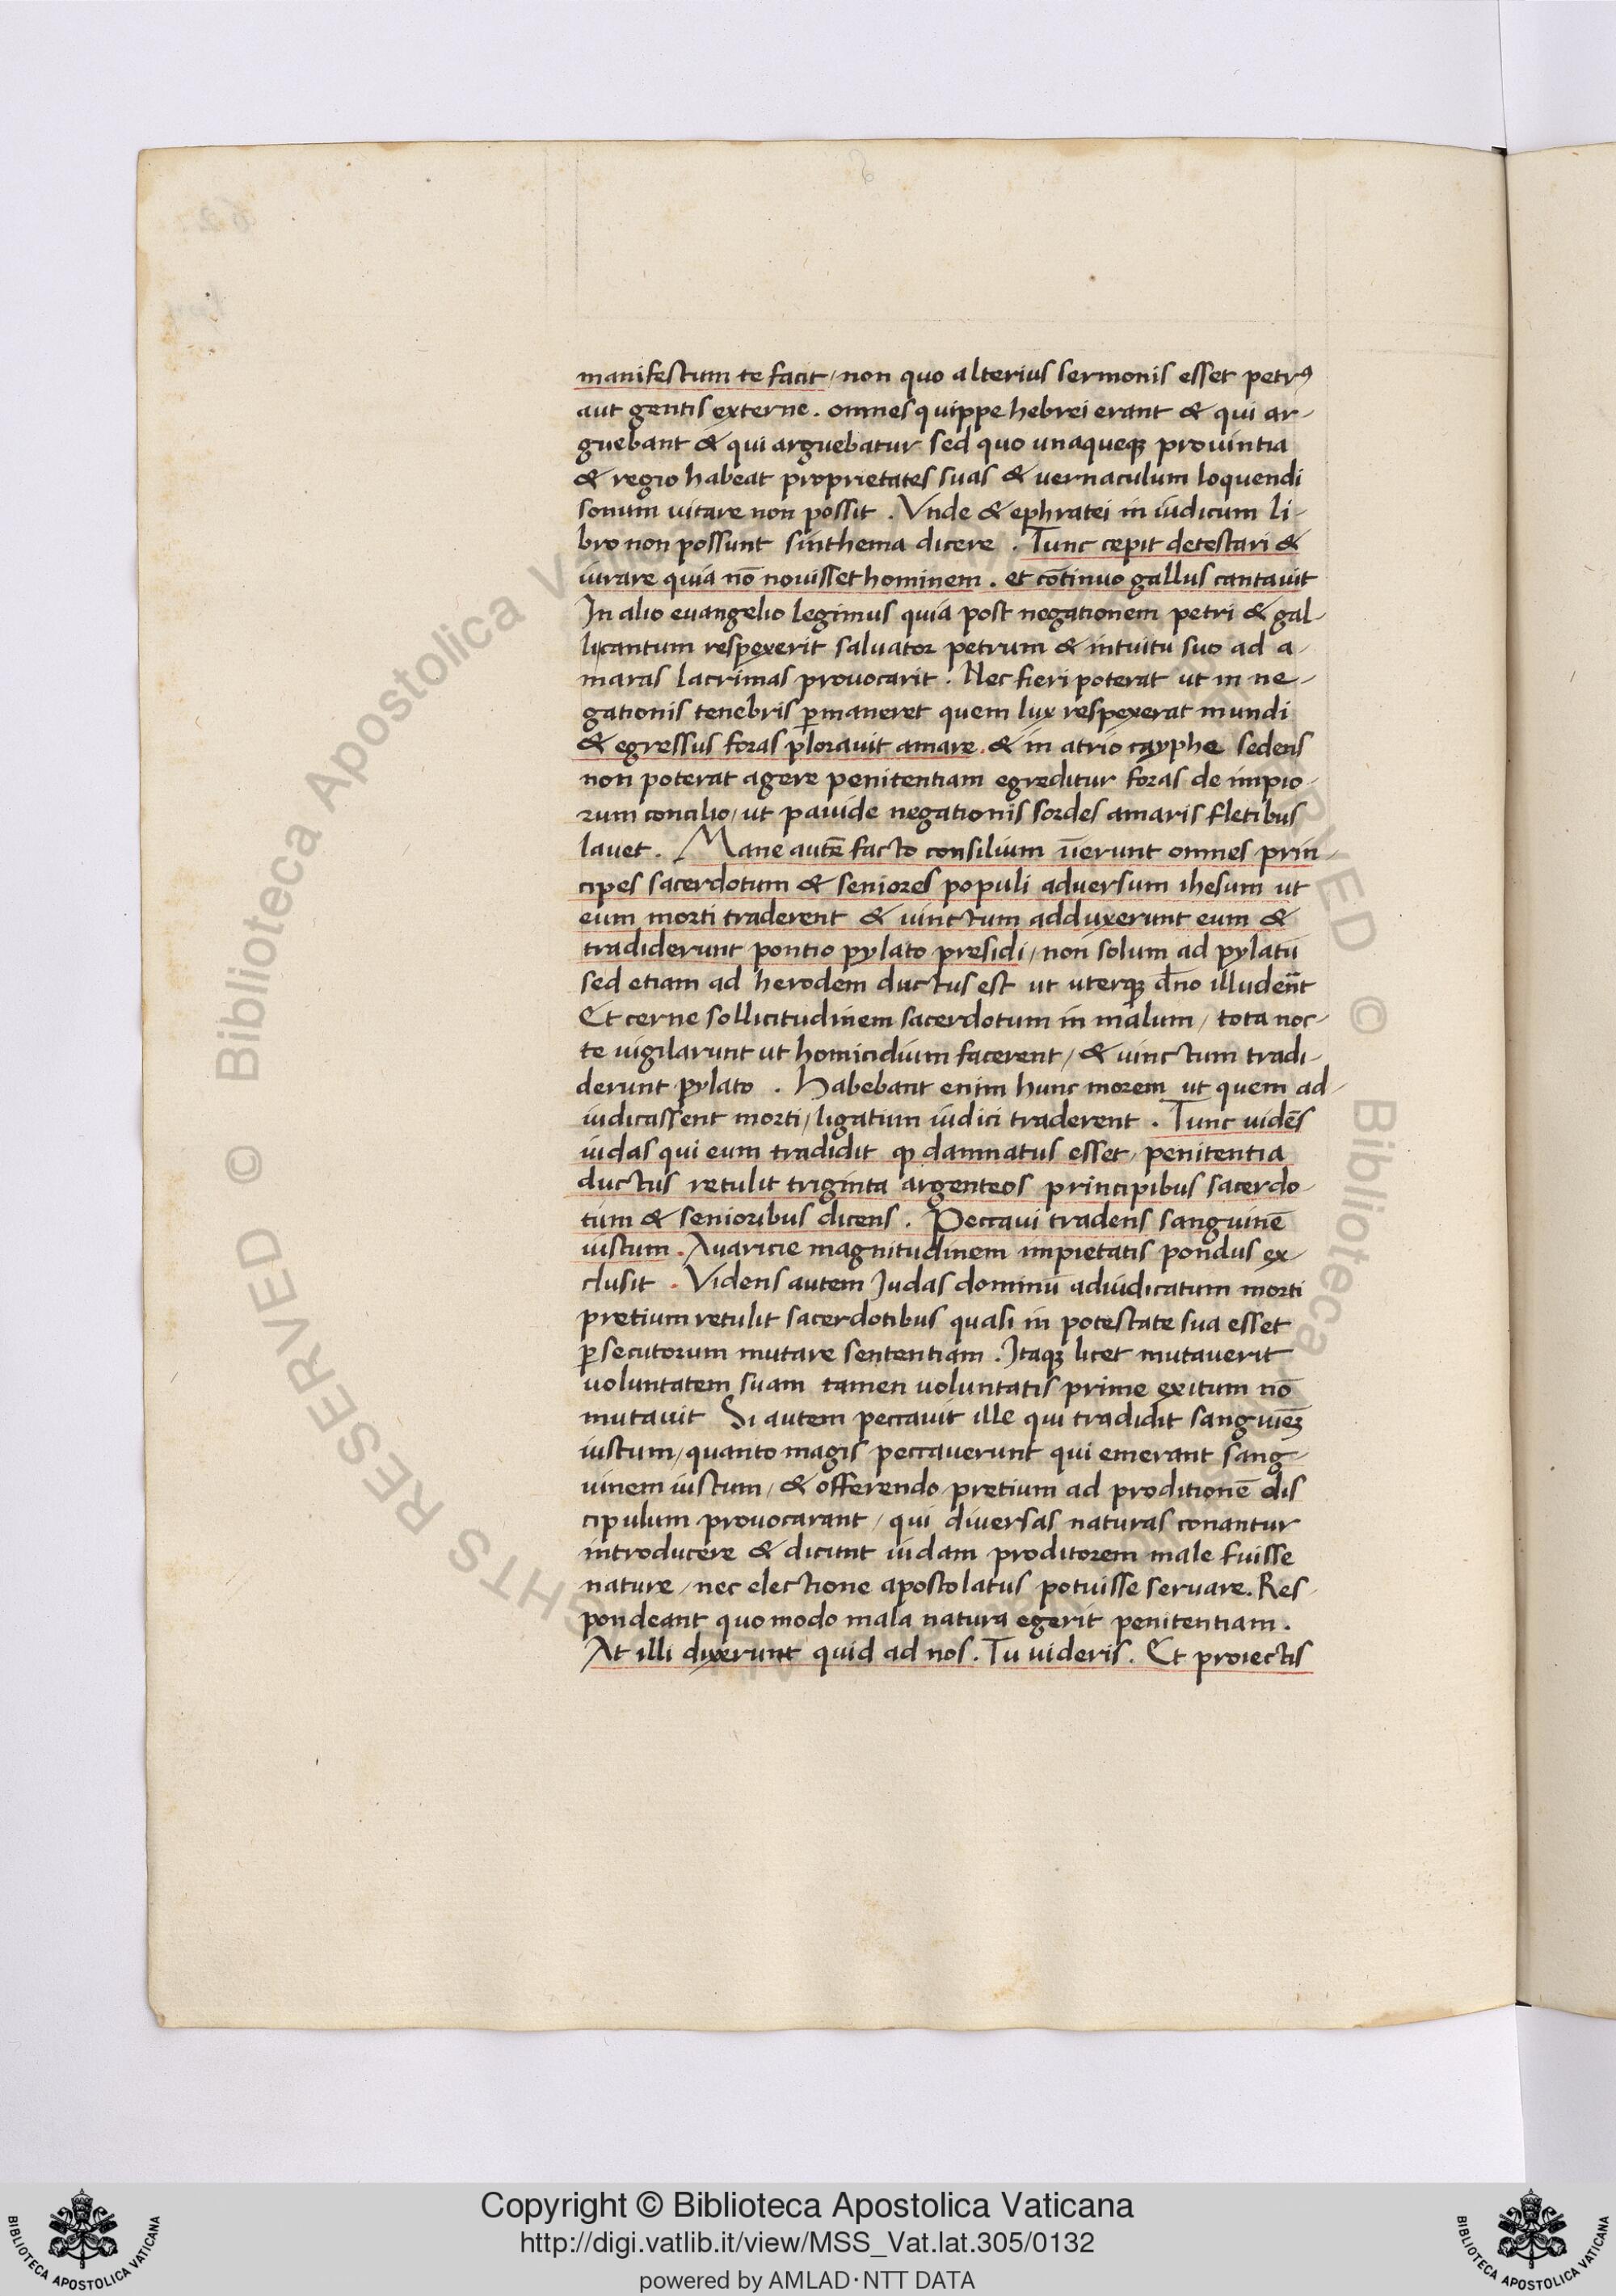 manifestum te facit / non quo alterius sermonis esset petrꝰ
aut gentis externe . omnes quippe hebrei erant & qui ar-
guebant & qui arguebatur sed quo unaqueqꝫ prouintia
& regio habeat proprietates suas & uernaculum loquendi
sonum uitare non possit . Vnde & ephratei in iudicum li-
bro non possunt sinthema dicere . Tunc cepit detestari &
iurare quia nō nouisset hominem . et cōtinuo gallus cantauit
In alio euangelio legimus quia post negationem petri & gal-
licantum respexerit saluator petrum & intuitu suo ad a-
maras lacrimas prouocarit . Nec fieri poterat ut in ne-
gationis tenebris ꝑmaneret quem lux respexerat mundi
& egressus foras plorauit amare . & in atrio cayphe sedens
non poterat agere penitentiam egreditur foras de impio-
rum concilio / ut pauide negationis sordes amaris fletibus
lauet . Mane autē facto consilium īierunt omnes prin-
cipes sacerdotum & seniores populi aduersum ihesum ut
eum morti traderent & uinctum adduxerunt eum &
tradiderunt pontio pylato presidi / non solum ad pylatū
sed etiam ad herodem ductus est ut uterqꝫ dn̄o illudent
Et cerne sollicitudinem sacerdotum in malum / tota noc-
te uigilarunt ut homicidium facerent / & uinctum tradi-
derunt pylato . Habebant enim hunc morem ut quem ad-
iudicassent morti / ligatum iudici traderent . Tunc uidēs
iudas qui eum tradidit ꝙ damnatus esset / penitentia
ductus retulit triginta argenteos principibus sacerdo-
tum & senioribus dicens . Peccaui tradens sanguinē
iustum . Auaricie magnitudinem impietatis pondus ex-
clusit . Videns autem Judas dominū adiudicatum morti
pretium retulit sacerdotibus quasi in potestate sua esset
ꝑsecutorum mutare sententiam . Itaqꝫ licet mutauerit
uoluntatem suam tamen uoluntatis prime exitum nō
mutauit Si autem peccauit ille qui tradidit sanguiēꝫ
iustum / quanto magis peccauerunt qui emerant sang-
uinem iustum / & offerendo pretium ad proditionē dis
cipulum prouocarant / qui diuersas naturas conantur
introducere & dicunt iudam proditorem male fuisse
nature / nec electione apostolatus potuisse seruare . Res-
pondeant quomodo mala natura egerit penitentiam .
At illi dixerunt quid ad nos . Tu uideris . Et proiectis
Copyright © Biblioteca Apostolica Vaticana
http://digi.vatlib.it/view/MSS_Vat.lat.305/0132
powered by AMLAD·NTT DATA